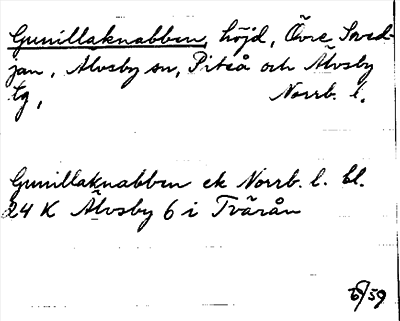 Gunillaknabben, höjd, Övre Sved-
jan, Älvsby sn, Piteå och Älvsby
tg, Norrb. l.
Gunillaknabben ek Norrb. l. bl.
24 K Älvsby 6 i Tvärån
6/59